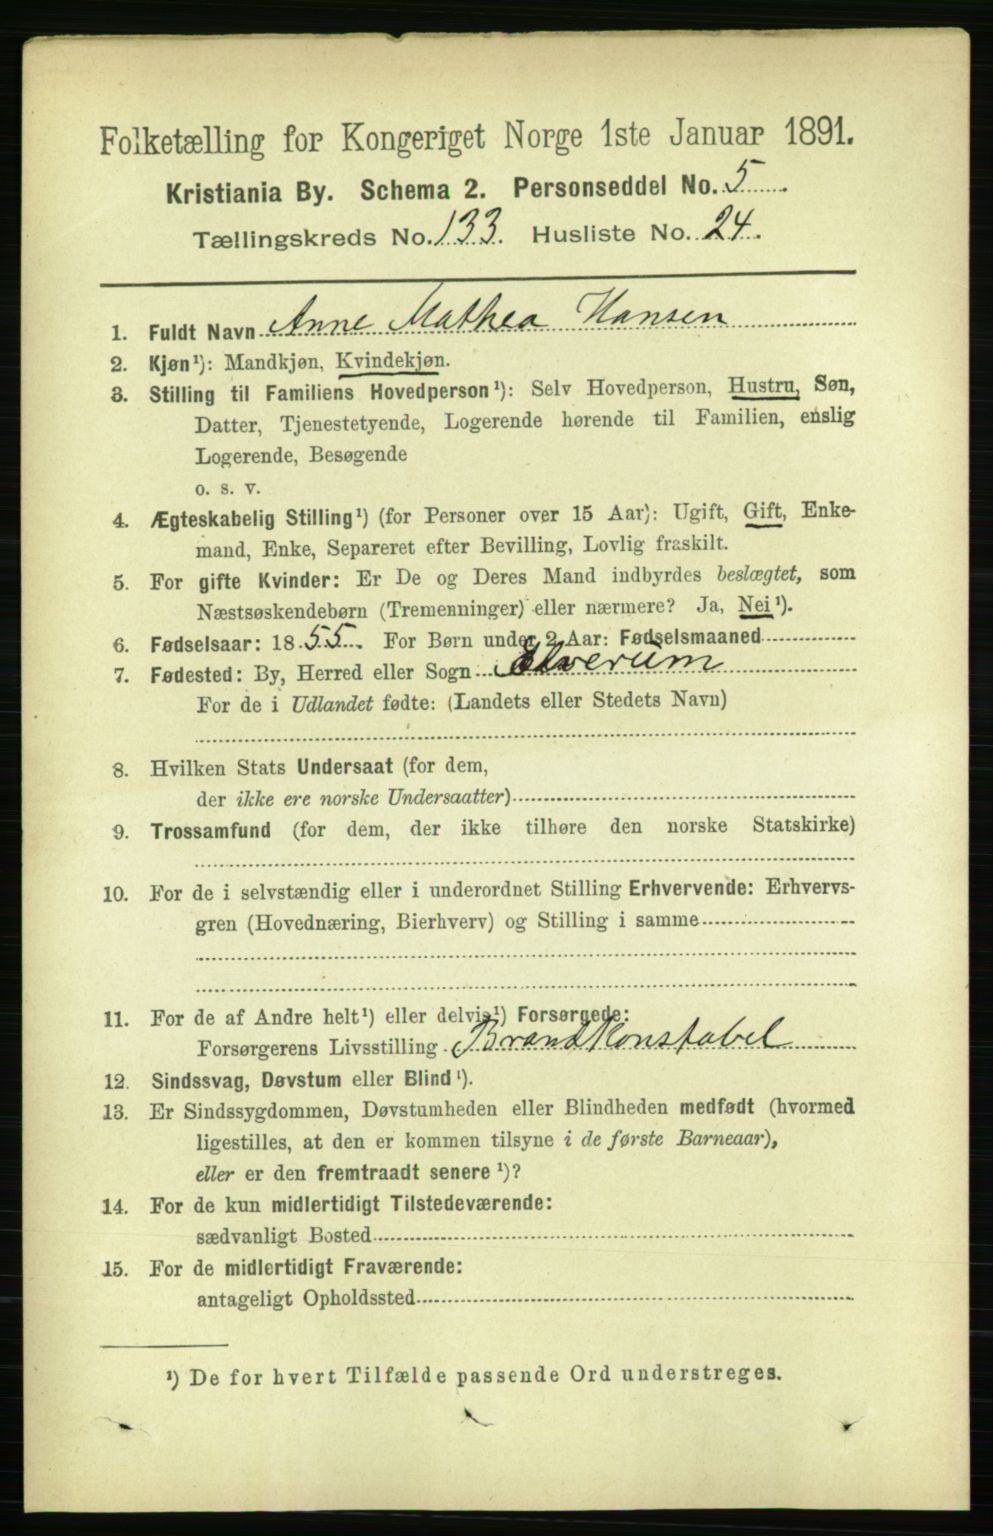 Folketælling for Kongeriget Norge 1ste Januar 1891.
Kristiania By. Schema 2. Personseddel No. 5
Tællingskreds No. 133. Husliste No. 24.
1. Fuldt Navn Anne Mathea Hansen
2. Kjøn¹): Mandkjøn, Kvindekjøn.
3. Stilling til Familiens Hovedperson¹): Selv Hovedperson, Hustru, Søn,
Datter, Tjenestetyende, Logerende hørende til Familien, enslig
Logerende, Besøgende
o. s. v.
4. Ægteskabelig Stilling¹) (for Personer over 15 Aar): Ugift, Gift, Enke-
mand, Enke, Separeret efter Bevilling, Lovlig fraskilt.
5. For gifte Kvinder: Er De og Deres Mand indbyrdes beslægtet, som
Næstsøskendebørn (Tremenninger) eller nærmere? Ja, Nei¹).
6. Fødselsaar: 1855. For Børn under 2 Aar: Fødselsmaaned
7. Fødested: By, Herred eller Sogn Elverum
For de i Udlandet fødte: (Landets eller Stedets Navn)
8. Hvilken Stats Undersaat (for dem,
der ikke ere norske Undersaatter)
9. Trossamfund (for dem, der ikke tilhøre den norske Statskirke)
10. For de i selvstændig eller i underordnet Stilling Erhvervende: Erhvervs-
gren (Hovednæring, Bierhverv) og Stilling i samme
11. For de af Andre helt¹) eller delvis¹) Forsørgede:
Forsørgerens Livsstilling Brandkonstabel
12. Sindssvag, Døvstum eller Blind¹).
13. Er Sindssygdommen, Døvstumheden eller Blindheden medfødt (hvormed
ligestilles, at den er kommen tilsyne i de første Barneaar),
eller er den fremtraadt senere¹)?
14. For de kun midlertidigt Tilstedeværende:
sædvanligt Bosted
15. For de midlertidigt Fraværende:
antageligt Opholdssted
¹) De for hvert Tilfælde passende Ord understreges.